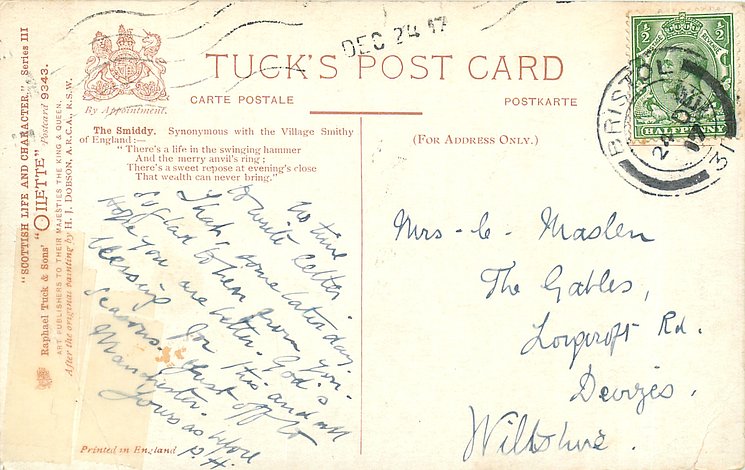 "SCOTTISH LIFE AND CHARACTER." Series III
Raphael Tuck & Sons' "OILETTE" Postcard 9343.
ART PUBLISHERS TO THEIR MAJESTIES THE KING & QUEEN.
After the original painting by H. J. DOBSON, A.R.C.A., R.S.W.
DEC 24 17
TUCK'S POST CARD
By Appointment.
CARTE POSTALE
POSTKARTE
The Smiddy. Synonymous with the Village Smithy
of England:—
"There's a life in the swinging hammer
And the merry anvil's ring;
There's a sweet repose at evening's close
That wealth can never bring."
(FOR ADDRESS ONLY.)
½ ½
HALFPENNY
BRISTOL
24 DE
17
31
No time
to write letter.
That some later day.
So glad to hear from you.
Hope you are better. God's
blessing for this and all
seasons. Just off to
Manchester.
Yours as before
P. H.
Mrs C. Maslen
The Gables,
Longcroft Rd.
Devizes.
Wiltshire.
Printed in England